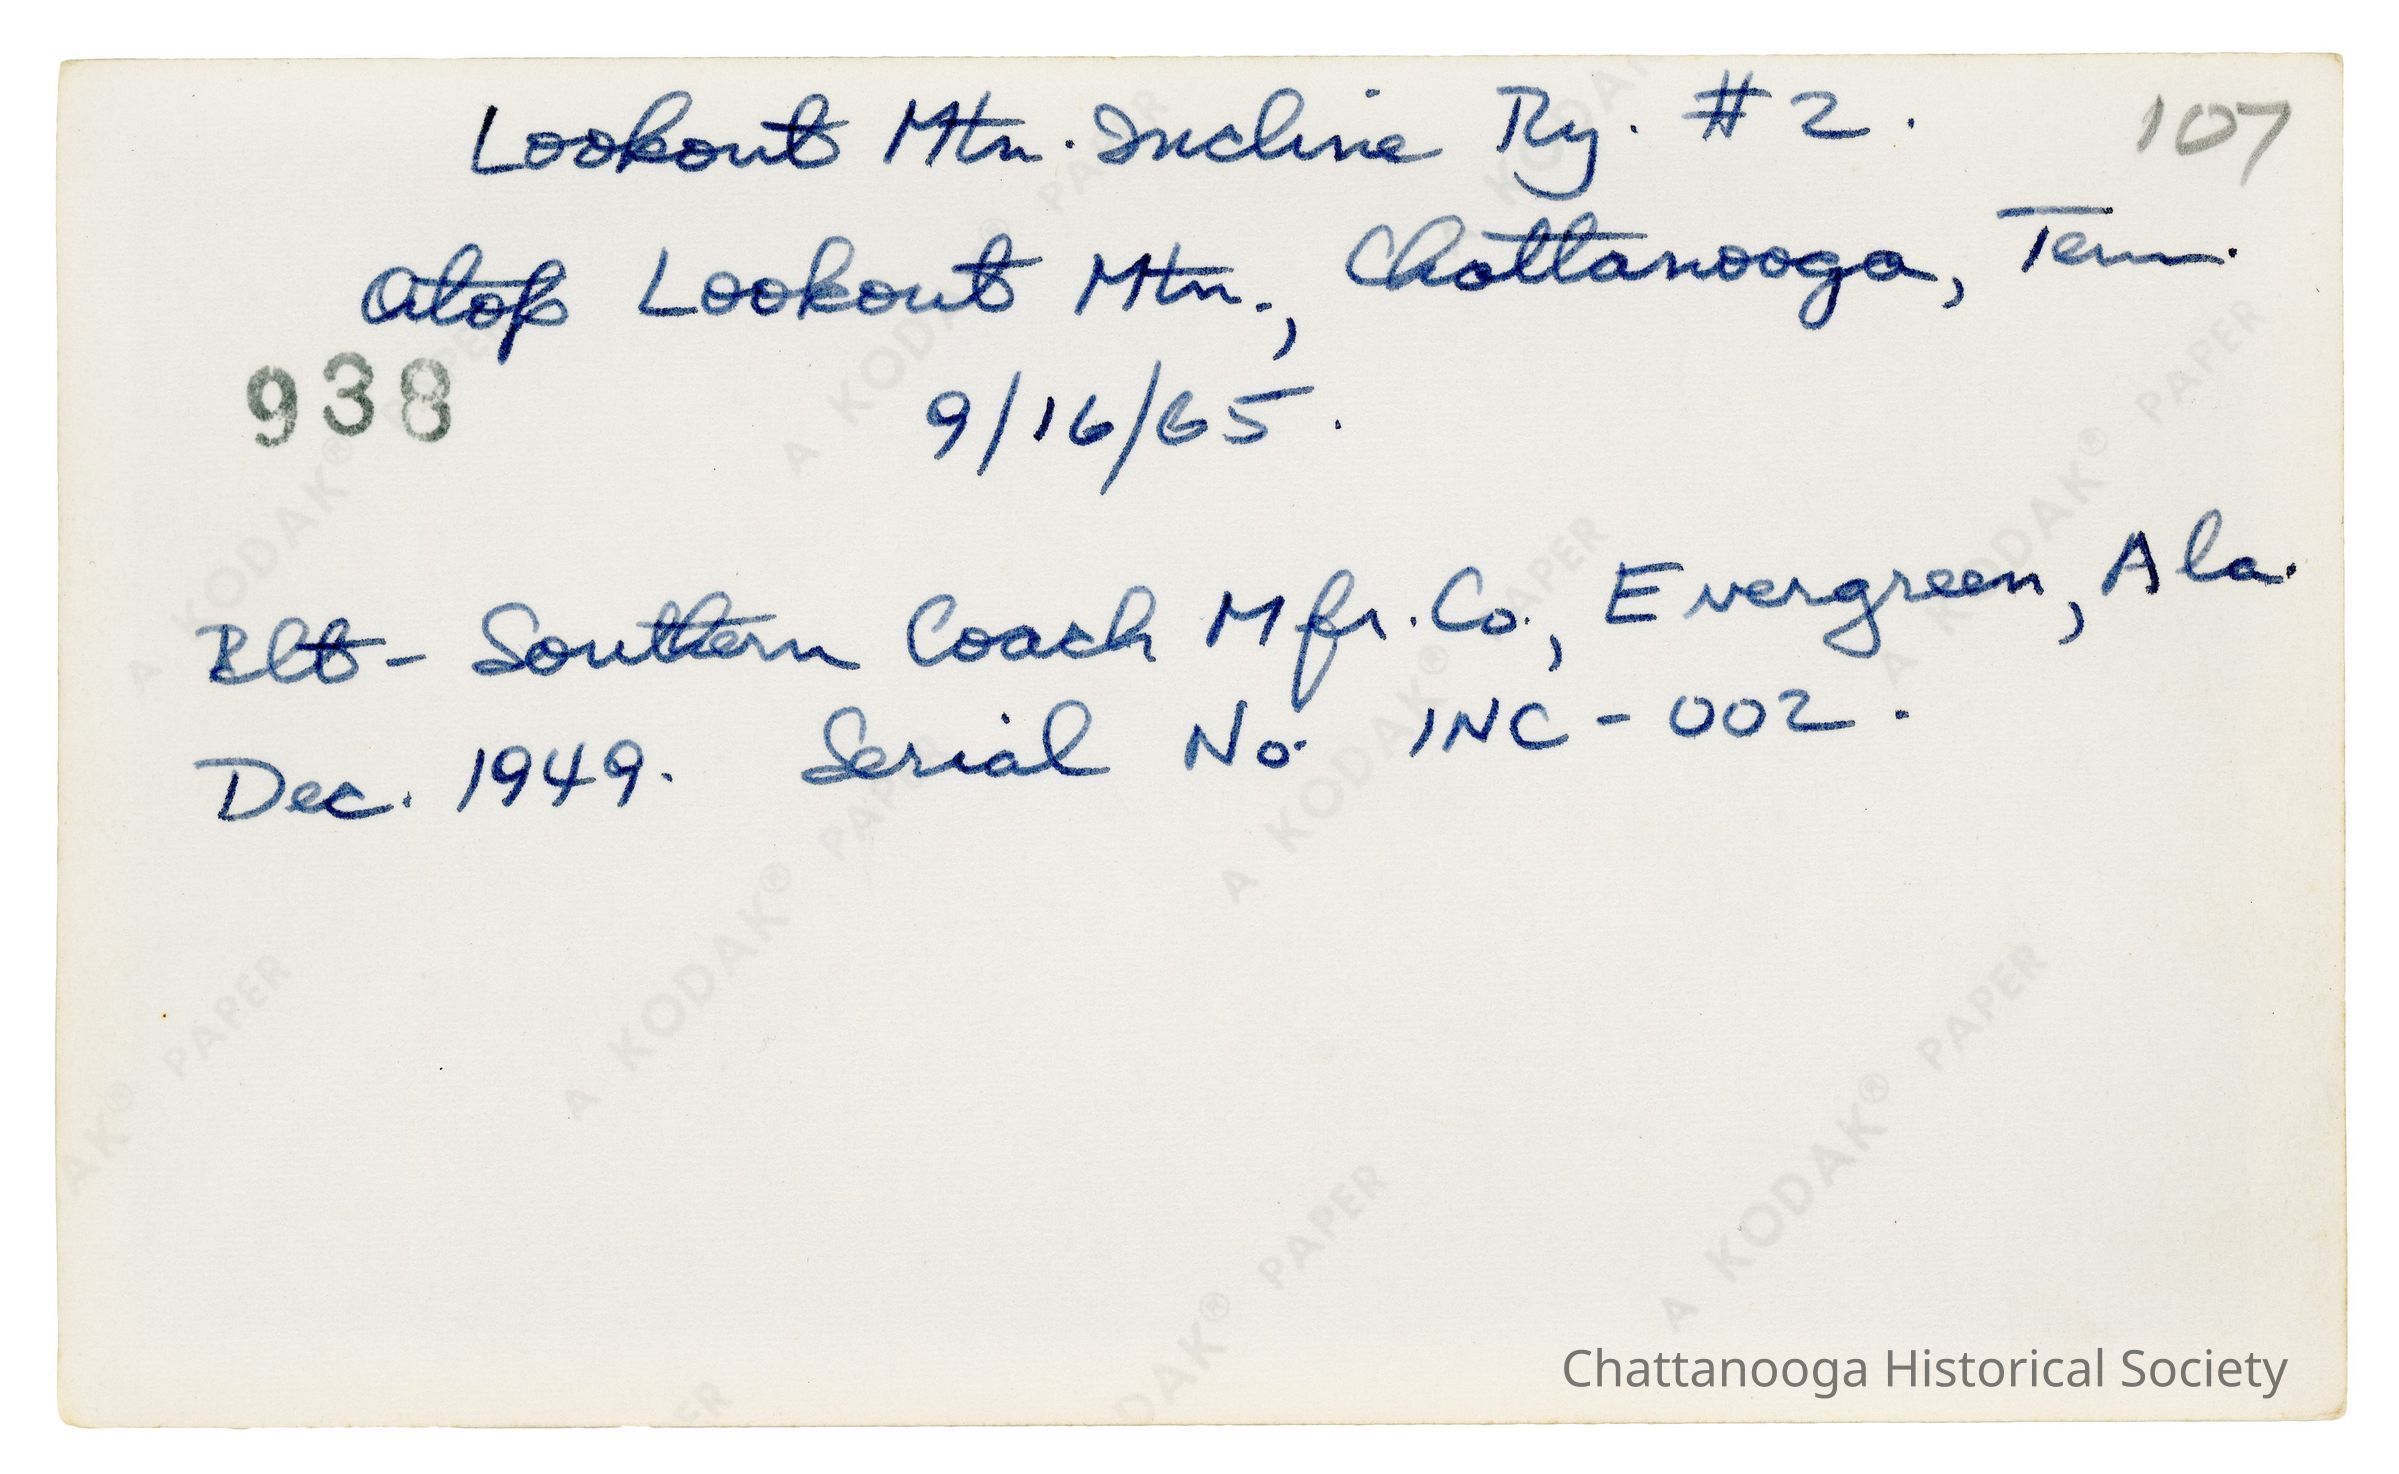 Lookout Mtn. Incline Ry. #2.
107
atop Lookout Mtn., Chattanooga, Tenn.
938
9/16/65.
Blt- Southern Coach Mfr. Co., Evergreen, Ala.
Dec. 1949. Serial No. INC-002.
A KODAK® PAPER
Chattanooga Historical Society